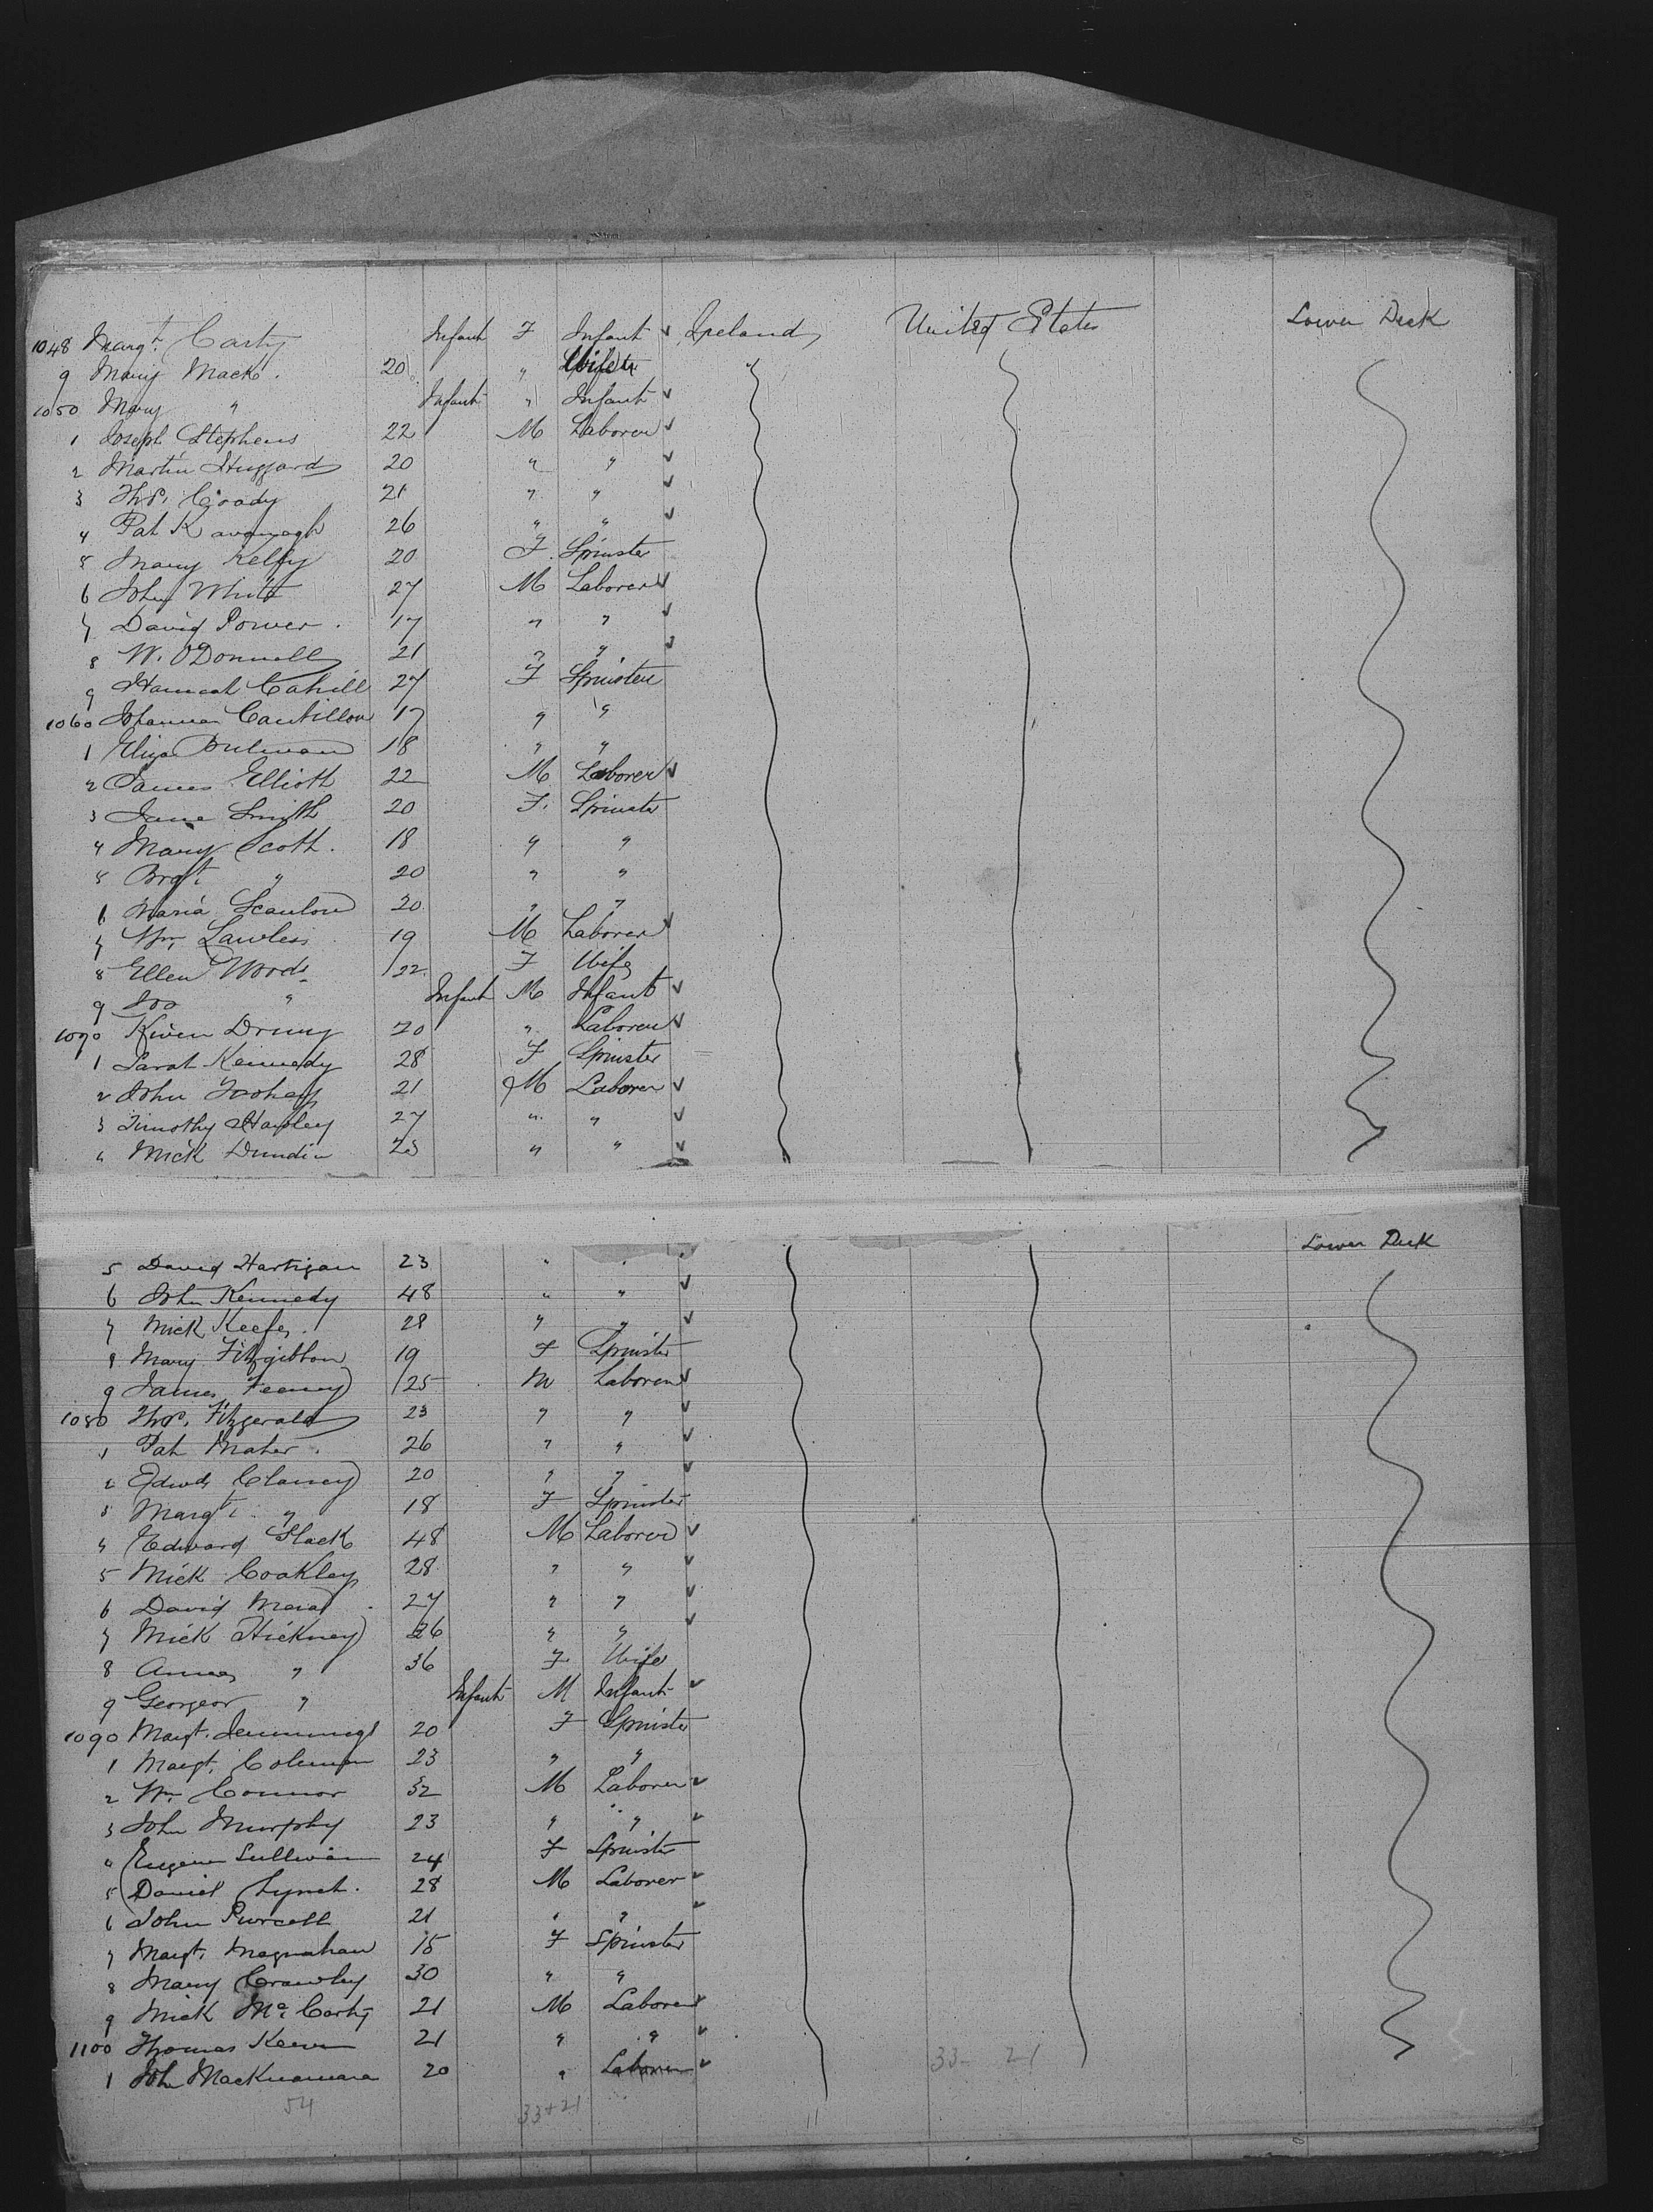 1048 Margt. Carty Infant F Infant ✓ Ireland United States Lower Deck
9 Mary Mack. 20 " Wife
1050 Mary " Infant " Infant ✓
1 Joseph Stephens 22 M Laborer ✓
2 Martin Huggard 20 " " ✓
3 Thos. Coady 21 " " ✓
4 Pat Kavanagh 26 " " ✓
5 Mary Kelly 20 F. Spinster
6 John White 27 M Laborer ✓
7 David Power. 17 " " ✓
8 W. O'Donnell 21 " " ✓
9 Hannah Cahill 27 F Spinster
1060 Johanna Cantillon 17 " "
1 Eliza 18 " "
2 James Elliott 22 M Laborer ✓
3 Jane Smith 20 F. Spinster
4 Mary Scott. 18 " "
5 Brgt. " 20 " "
6 Maria Scanlon 20 " "
7 Wm. Lawless 19 M Laborer ✓
8 Ellen Woods 22 F Wife
9 Jos " Infant M Infant ✓
1070 Drury 20 " Laborer ✓
1 Sarah Kennedy 28 F Spinster
2 John Toohey 21 M Laborer ✓
3 Timothy Hawley 27 " " ✓
4 Mick Dundin " " ✓
5 David Hartigan 23 " " Lower Deck
6 John Kennedy 48 " " ✓
7 Mick Keefe. 28 " " ✓
8 Mary Fitzgibbon 19 F Spinster
9 James Feeney 25 M Laborer ✓
1080 Thos. Fitzgerald 23 " " ✓
1 Pat Maher. 26 " " ✓
2 Edwd. Clancy 20 " " ✓
3 Margt. " 18 F Spinster
4 Edward Slack 48 M Laborer ✓
5 Mick Coakley 28 " " ✓
6 David 27 " " ✓
7 Mick Hickney 26 " " ✓
8 Annes " 36 F Wife
9 George " Infant M Infant ✓
1090 Margt. Jennings 20 F Spinster
1 Margt. Coleman 23 " "
2 Wm. Connor 32 M Laborer ✓
3 John Murphy 23 " " ✓
4 Eugene Sullivan 24 F Spinster
5 Daniel Lynch. 28 M Laborer ✓
6 John Purcell 21 " " ✓
7 Margt. Magnahan 18 F Spinster
8 Mary Crawley 30 " "
9 Mick McCarty 21 M Laborer ✓
1100 Thomas 21 " " ✓
1 John Macknamara 20 " Laborer ✓
33 - 21
54 33 + 21